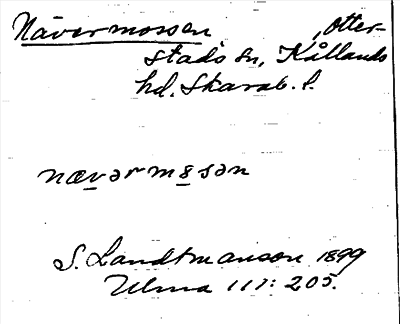 Nävermossen , Otter-
stads sn, Kållands
hd. Skarab. l.
nævərmosən
S. Landtmanson 1899
Ulma 117: 205.